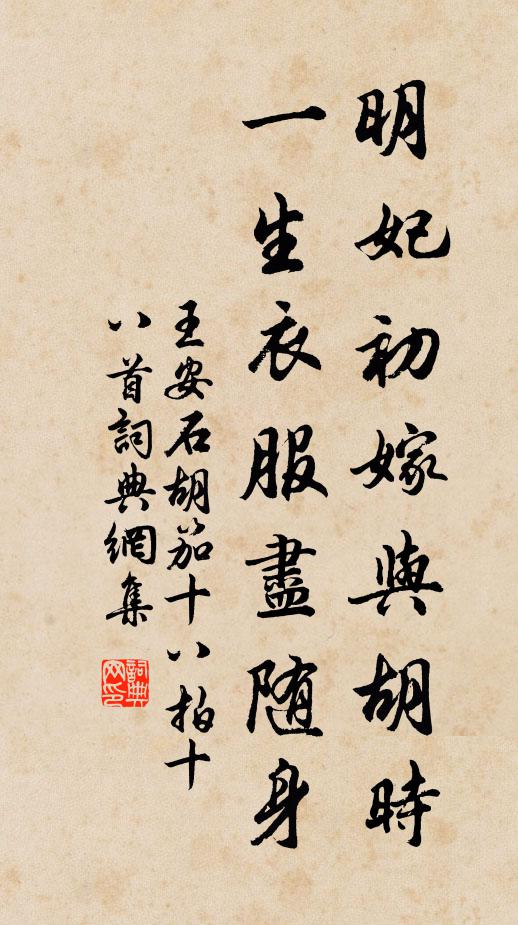 明妃初嫁與胡時
一生衣服盡随身
王安石胡笳十八拍十
八首詞典網集
詞典
网印